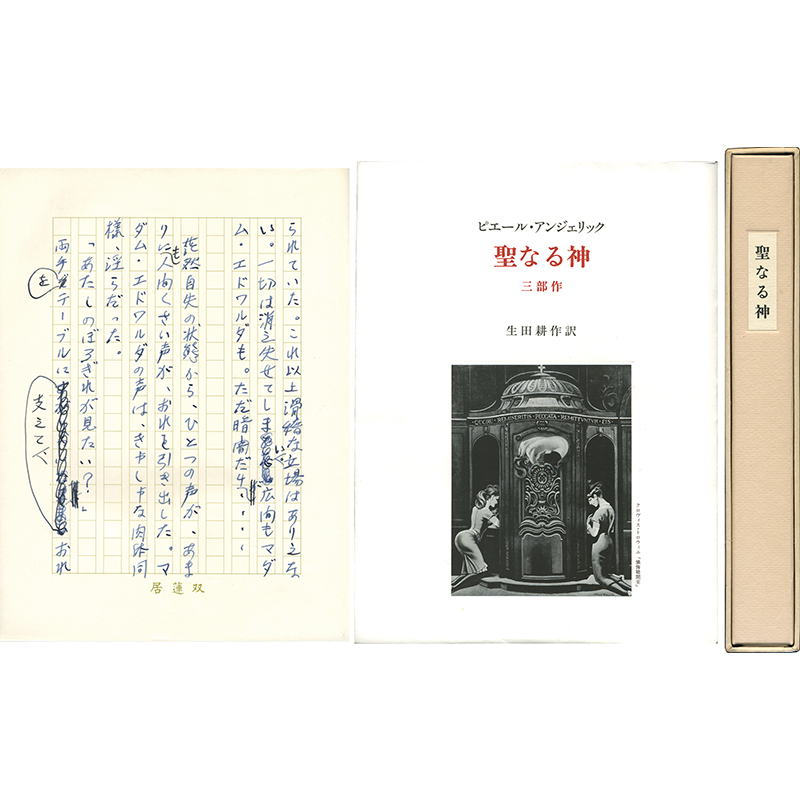 られていた。これ以上滑稽な立場はありえな
い。一切は消え失せてしまい、広間もマダ
ム・エドワルダも。ただ暗闇だけ・・・・
茫然自失の状態から、ひとつの声が、あま
りにも人間くさい声が、おれを引き出した。マ
ダム・エドワルダの声は、きゃしゃな肉体同
様、淫らだった。
「あたしのぼろぎれが見たい?」
両手をテーブルに支えておれ
双蓮居
ピエール・アンジェリック
聖なる神
三部作
生田耕作訳
PECCATA REMITTUNTUR EIS
聖なる神